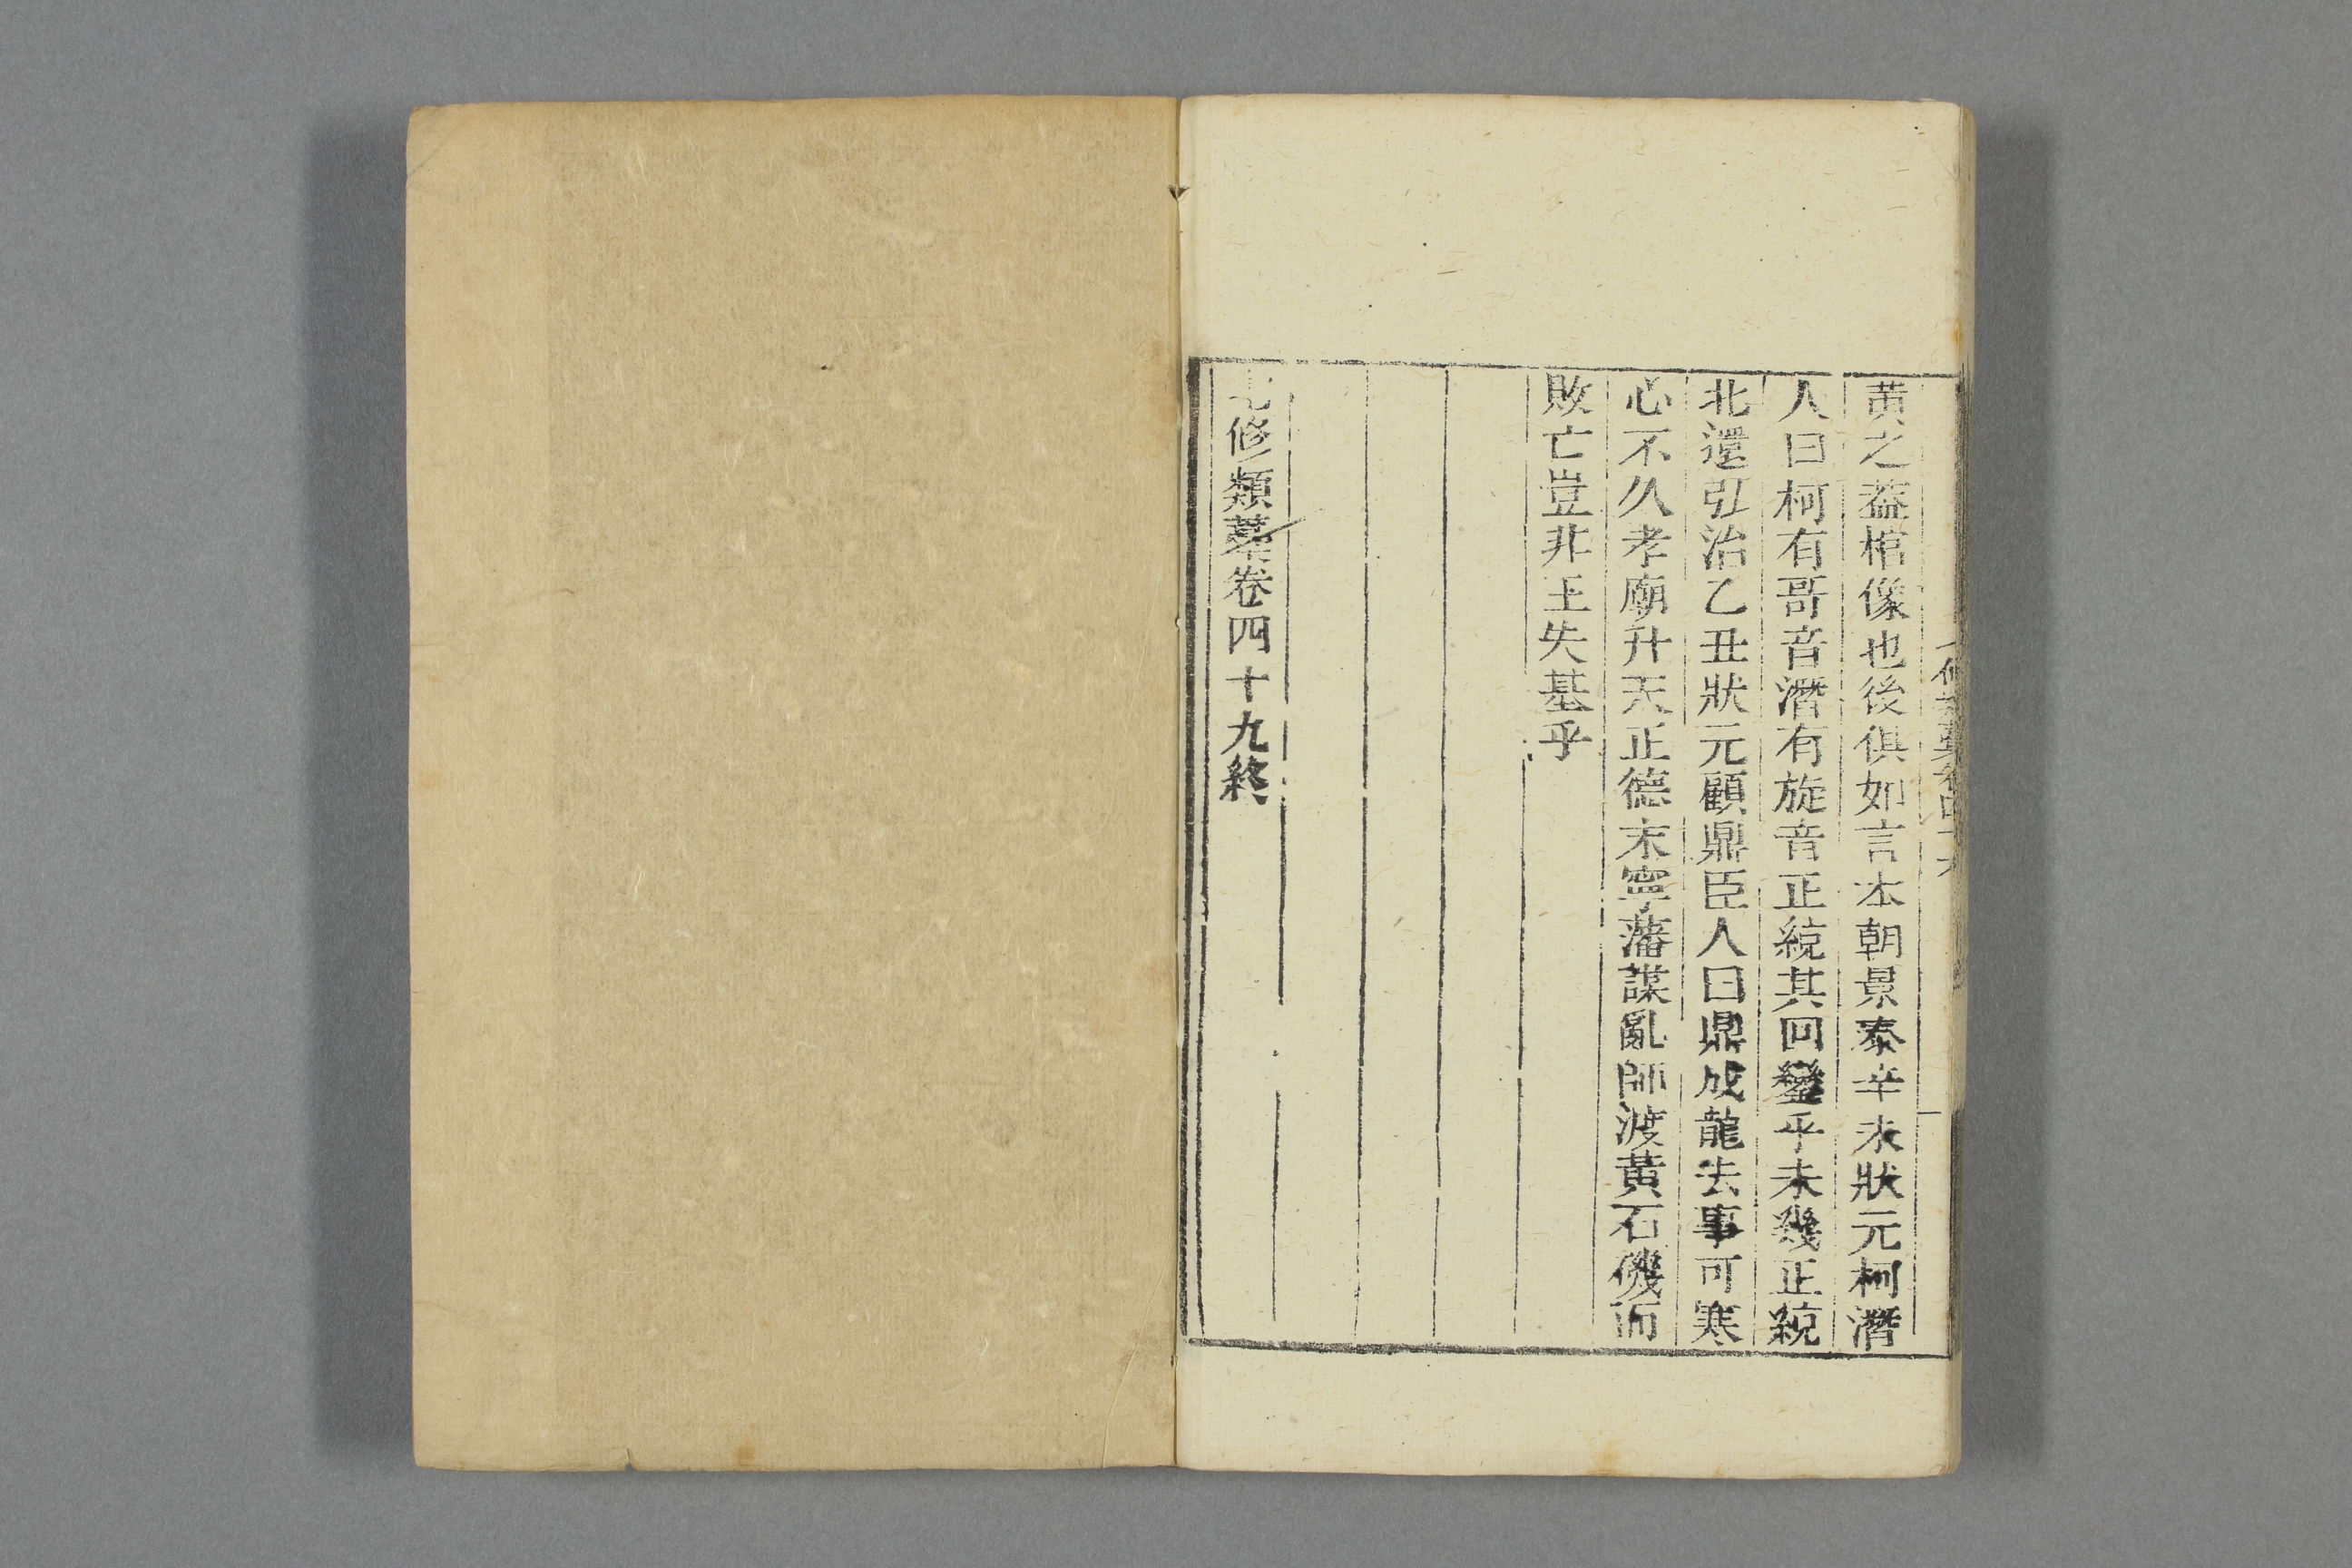 黃之葢棺像也後俱如言本朝景泰辛未狀元柯潛
人曰柯有哥音潛有旋音正綂其回鑾乎未幾正綂
北還弘治乙丑狀元顧鼎臣人曰鼎成龍去事可寒
心不久孝廟升天正德末寧藩謀亂師渡黃石磯而
敗亡豈非王失基乎
七修類藁卷四十九終